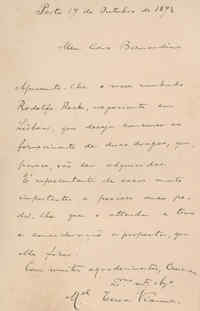 Porto 19 de Outubro de 1893
Meu Caro Bernardino
Apresento-lhe o meu cunhado
Rodolfo Heck, negociante em
Lisboa, que deseja concorrer ao
fornecimento de duas dragas, que,
parece, vão ser adquiridas.
É representante de casas muito
importantes e preciso mas pe-
dir-lhe que o attenda e tome
a consideração a proposta, que
elle fizer.
Com muitos agradecimentos,